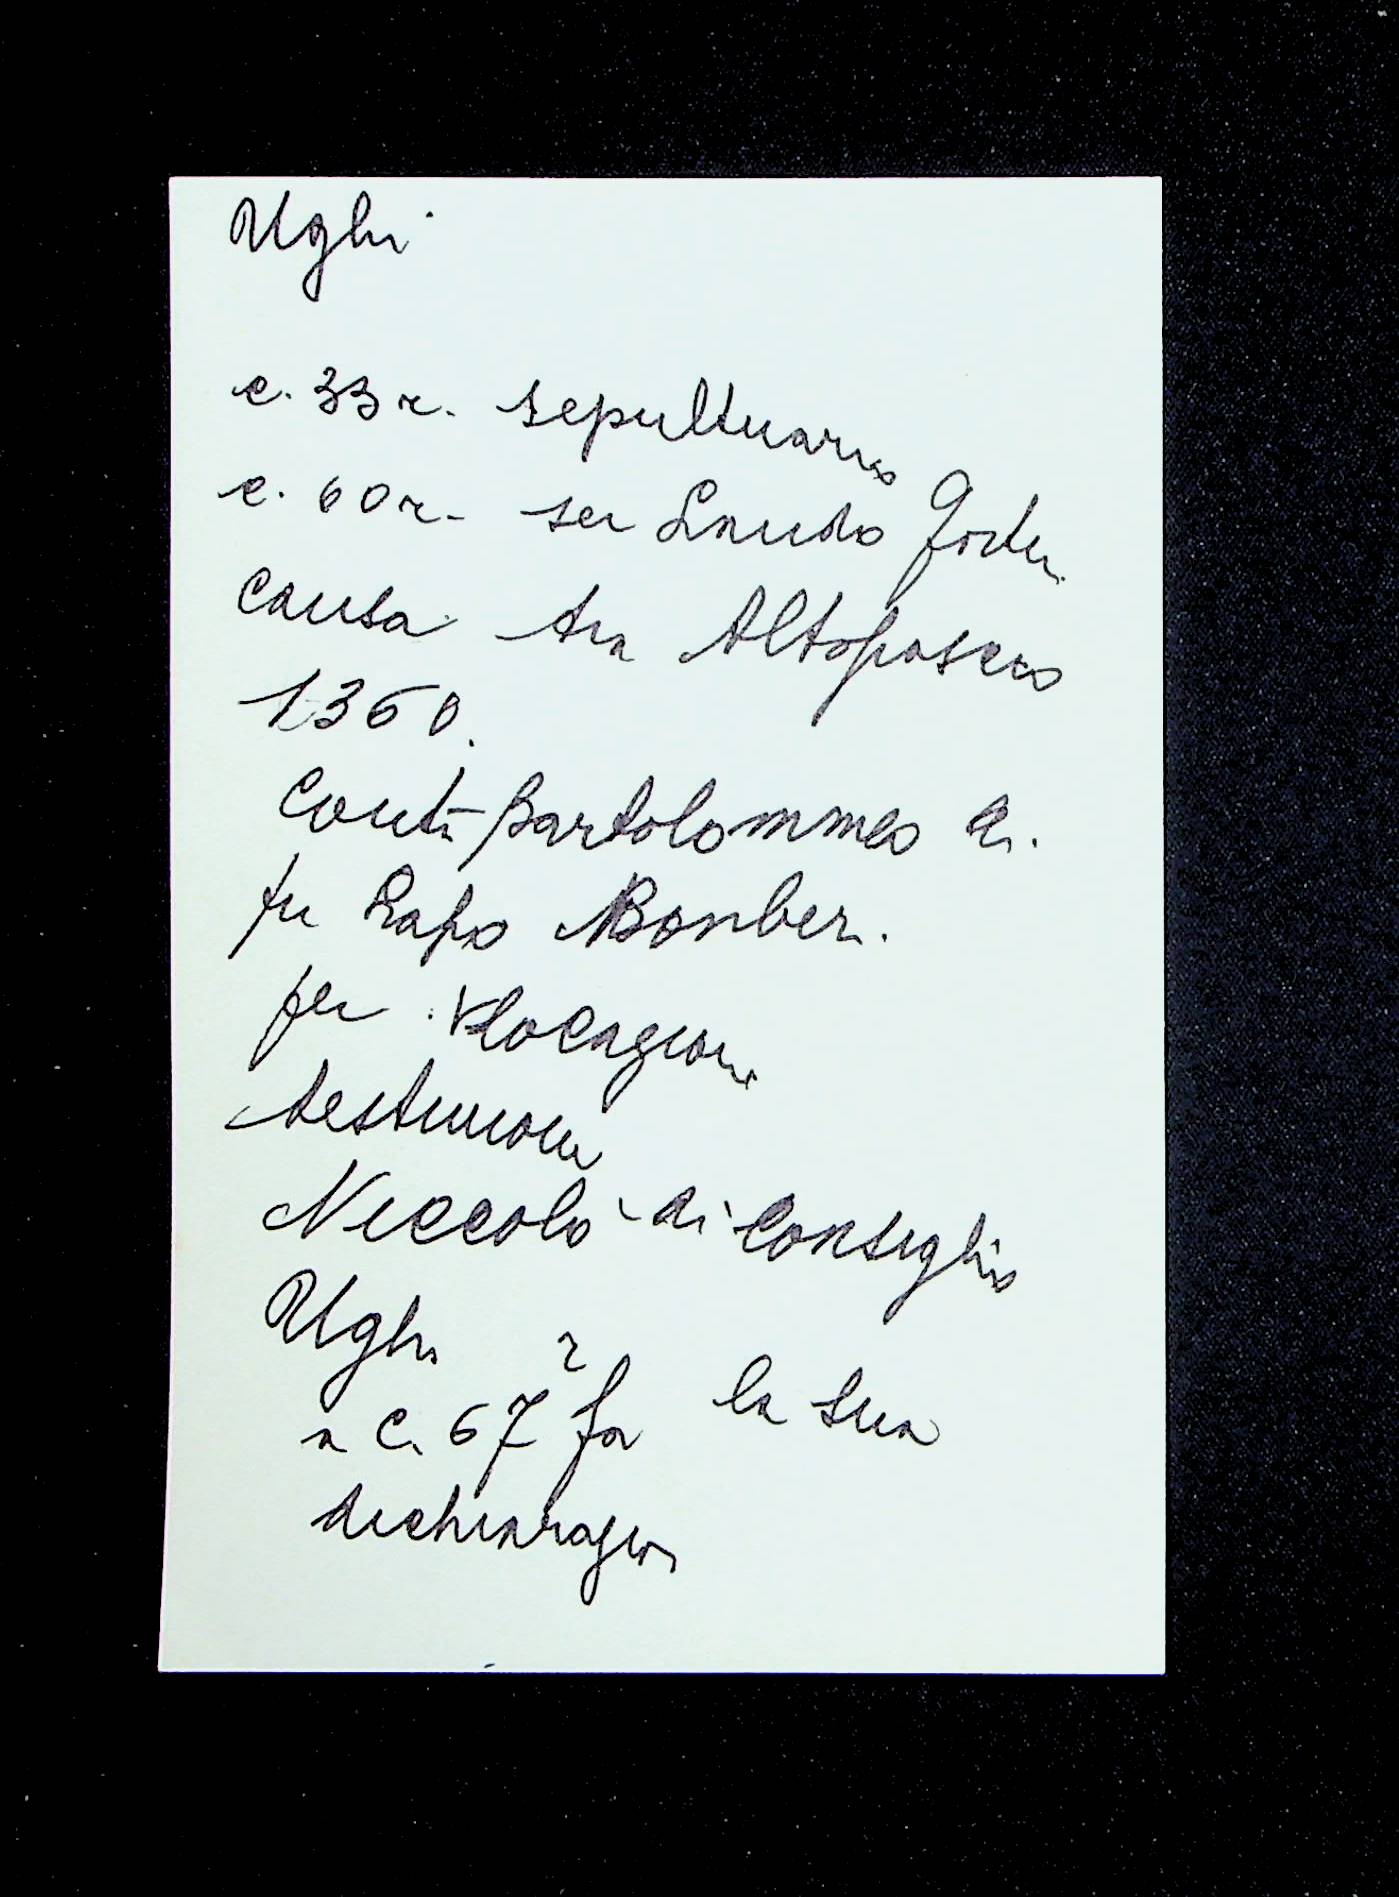 Ughi
c. 33 r. sepultuario
c. 60 r- ser Lando
causa tra Altopascio
1360.
Conti Bartolommeo di
fu Lapo Bonber.
per locagioni
testimoni
Niccolò di Consiglio
Ughi
a c. 67 r fa la sua
dichiaragion